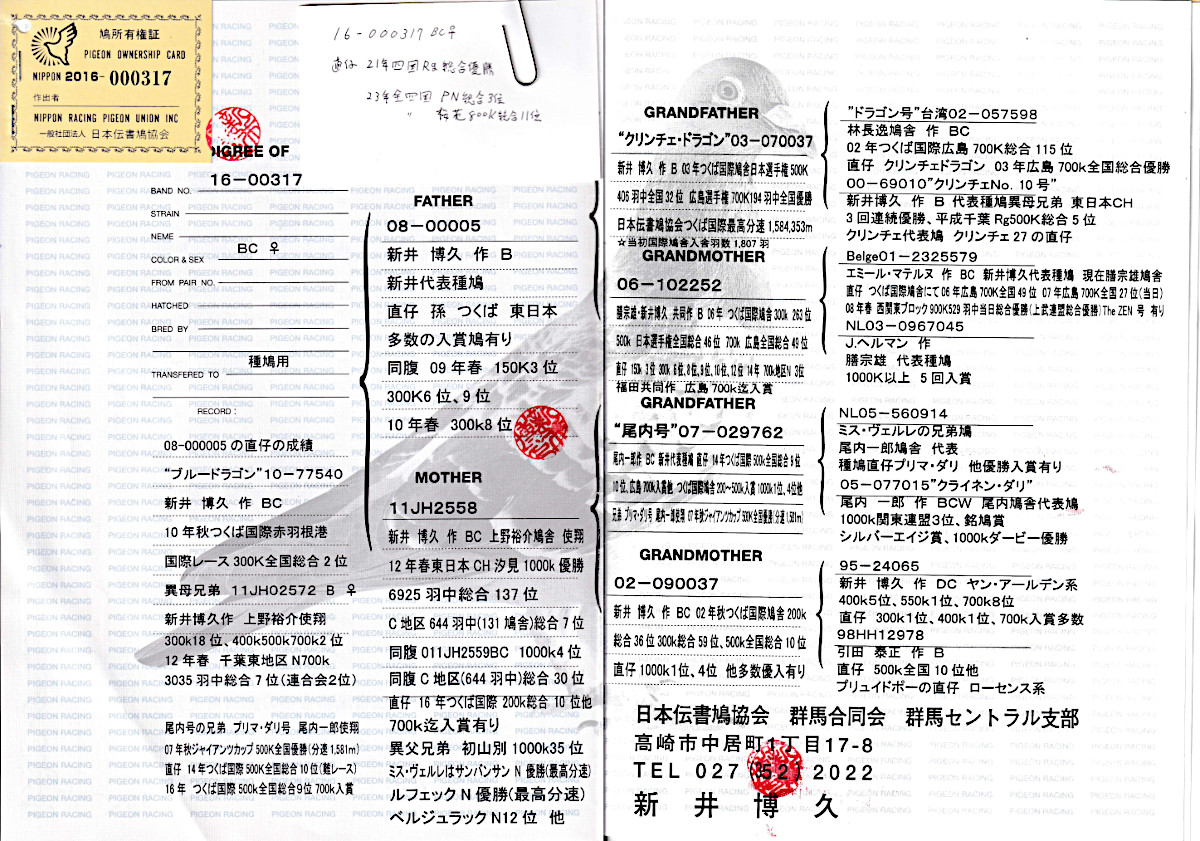 鳩所有権証
PIGEON OWNERSHIP CARD
NIPPON 2016- 000317
作出者
NIPPON RACING PIGEON UNION INC
一般社団法人 日本伝書鳩協会
16-000317 BC♀
直仔 21年四国Rg総合優勝
23年全四国 PN総合3位
〃 桜花800K総合11位
DIGREE OF
16-00317
BAND NO.
STRAIN
NEME
BC ♀
COLOR & SEX
FROM PAIR NO.
HATCHED
BRED BY
種鳩用
TRANSFERED TO
RECORD:
08-000005の直仔の成績
"ブルードラゴン"10-77540
新井 博久 作 BC
10年秋つくば国際赤羽根港
国際レース300K全国総合2位
異母兄弟 11JH02572 B ♀
新井博久作 上野裕介使翔
300k18位、400k500k700k2位
12年春 千葉東地区N700k
3035羽中総合7位(連合会2位)
尾内号の兄弟 プリマ・ダリ号 尾内一郎使翔
07年秋ジャイアンツカップ500K全国優勝(分速1,581m)
直仔 14年つくば国際500K全国総合10位(難レース)
16年 つくば国際500k全国総合9位 700k入賞
FATHER
08-00005
新井 博久 作 B
新井代表種鳩
直仔 孫 つくば 東日本
多数の入賞鳩有り
同腹 09年春 150K3位
300K6位、9位
10年春 300k8位
MOTHER
11JH2558
新井 博久 作 BC 上野裕介鳩舎 使翔
12年春東日本CH汐見1000k優勝
6925羽中総合137位
C地区644羽中(131鳩舎)総合7位
同腹011JH2559BC 1000k4位
同腹C地区(644羽中)総合30位
直仔 16年つくば国際 200k総合10位他
700k迄入賞有り
異父兄弟 初山別1000k35位
ミス・ヴェルレはサンバンサンN優勝(最高分速)
ルフェックN優勝(最高分速)
ベルジュラックN12位 他
GRANDFATHER
"クリンチェ・ドラゴン"03-070037
新井 博久 作 B 03年つくば国際鳩舎日本選手権500K
406羽中全国32位 広島選手権700K194羽中全国優勝
日本伝書鳩協会つくば国際最高分速1,584,353m
☆当初国際鳩舎入舎羽数1,807羽
GRANDMOTHER
06-102252
勝宗雄・新井博久 共同作 B 06年 つくば国際鳩舎300k 263位
500k 日本選手権全国総合46位 700k 広島全国総合49位
直仔 150k 3位 300k 6位、8位、9位、10位、12位 14年 700k地区N 3位
福田共同作 広島700k迄入賞
GRANDFATHER
"尾内号"07-029762
尾内一郎作 BC 新井代表種鳩 直仔 14年つくば国際500k全国総合9位
10位、広島700k入賞他 つくば国際鳩舎200〜500k入賞1000k1位、4位他
兄弟 プリマ・ダリ号 尾内一郎使翔 07年秋ジャイアンツカップ500K全国優勝(分速1,581m)
GRANDMOTHER
02-090037
新井 博久 作 BC 02年秋つくば国際鳩舎200k
総合36位300k総合59位、500k全国総合10位
直仔1000k1位、4位 他多数優入有り
"ドラゴン号"台湾02-057598
林長逸鳩舎 作 BC
02年つくば国際広島700K総合115位
直仔 クリンチェドラゴン 03年広島700k全国総合優勝
00-69010"クリンチェNo.10号"
新井博久 作 B 代表種鳩異母兄弟 東日本CH
3回連続優勝、平成千葉Rg500K総合5位
クリンチェ代表鳩 クリンチェ27の直仔
Belge01-2325579
エミール・マテルヌ 作 BC 新井博久代表種鳩 現在勝宗雄鳩舎
直仔 つくば国際鳩舎にて06年広島700K全国49位 07年広島700K全国27位(当日)
08年春 西関東ブロック900K529羽中当日総合優勝(上武連盟総合優勝)The ZEN 号 有り
NL03-0967045
J.ヘルマン 作
勝宗雄 代表種鳩
1000K以上 5回入賞
NL05-560914
ミス・ヴェルレの兄弟鳩
尾内一郎鳩舎 代表
種鳩直仔プリマ・ダリ 他優勝入賞有り
05-077015"クライネン・ダリ"
尾内 一郎 作 BCW 尾内鳩舎代表鳩
1000k関東連盟3位、銘鳩賞
シルバーエイジ賞、1000kダービー優勝
95-24065
新井 博久 作 DC ヤン・アールデン系
400k5位、550k1位、700k8位
直仔 300k1位、400k1位、700k入賞多数
98HH12978
引田 泰正 作 B
直仔 500k全国10位他
ブリュイドボーの直仔 ローセンス系
日本伝書鳩協会 群馬合同会 群馬セントラル支部
高崎市中居町1丁目17-8
TEL 027 (352) 2022
新井博久